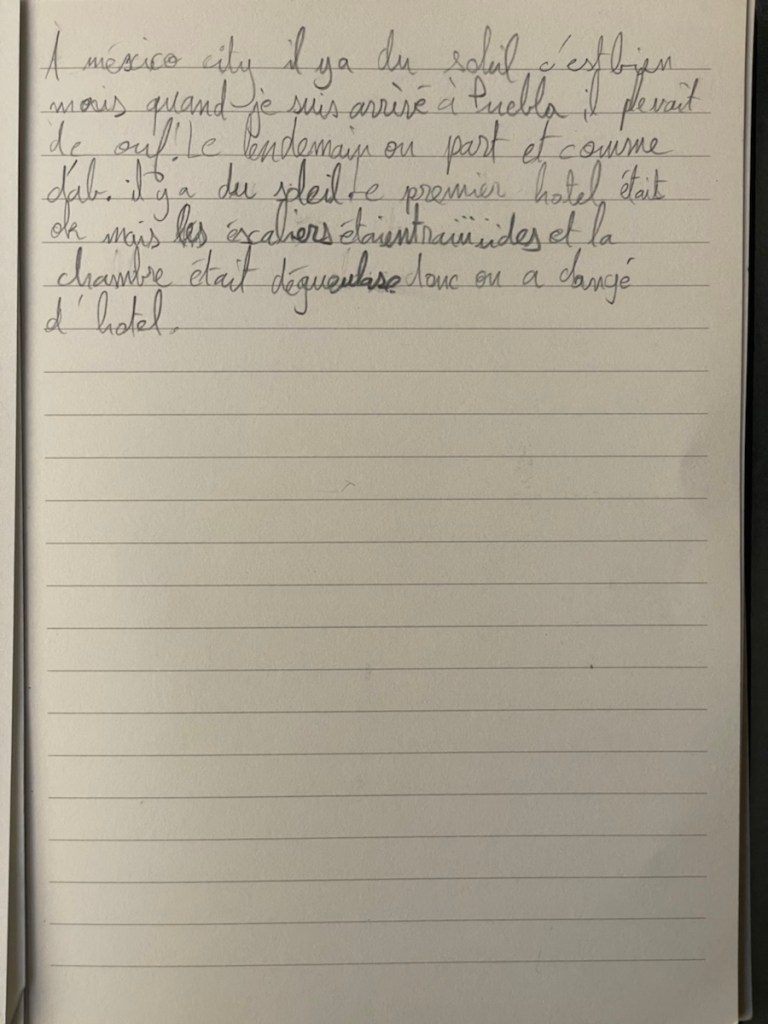 A méxico city il ya du soleil c'est bien
mais quand je suis arrivé à Puebla il plevait
de ouf! Le lendemain on part et comme
d'ab. il y a du soleil. Le premier hotel était
ok mais les éscaliers étaient raiiiiides et la
chambre était dégueulase donc on a changé
d'hotel.